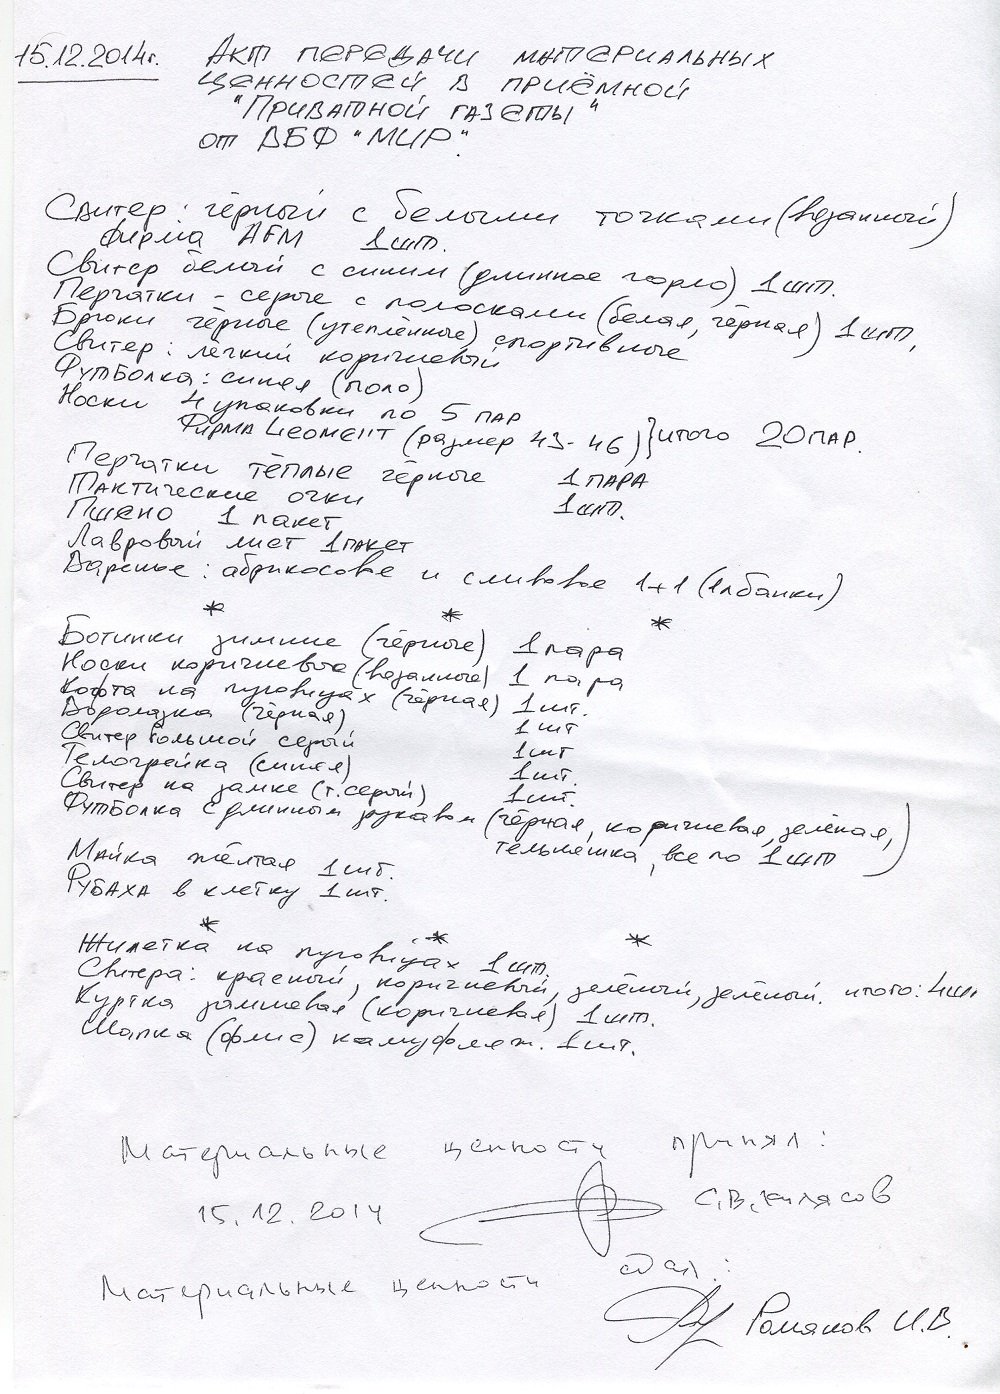 15.12.2014г. Акт передачи материальных
ценностей в приёмной
"Приватной газеты"
от ВБФ "МИР".
Свитер: чёрный с белыми точками (вязанный)
фирма AFM 1шт.
Свитер белый с синим (длинное горло) 1шт.
Перчатки - серые с полосками (белая, чёрная) 1шт,
Брюки чёрные (утеплённые) спортивные
Свитер: лёгкий коричневый
Футболка: синяя (поло)
Носки 4 упаковки по 5 пар
Фирма (размер 43-46) } итого 20 пар.
Перчатки тёплые чёрные 1 пара
Тактические очки 1шт.
Пшено 1 пакет
Лавровый лист 1 пакет
Варенье: абрикосовое и сливовое 1+1 (1л банки)
* * *
Ботинки зимние (чёрные) 1 пара
Носки коричневые (вязанные) 1 пара
Кофта на пуговицах (чёрная) 1шт.
Водолазка (чёрная) 1шт
Свитер большой серый 1шт
Телогрейка (синяя) 1шт.
Свитер на замке (т.серый) 1шт.
Футболка с длинным рукавом (чёрная, коричневая, зелёная,
тельняшка, все по 1шт)
Майка жёлтая 1шт.
Рубаха в клетку 1шт.
* * *
Жилетка на пуговицах 1шт.
Свитера: красный, коричневый, зелёный, зелёный. итого: 4шт
Куртка замшевая (коричневая) 1шт.
Шапка (флис) камуфляж. 1шт.
Материальные ценности принял:
15.12.2014 С.В.Килясов
Материальные ценности сдал:
Романов И.В.